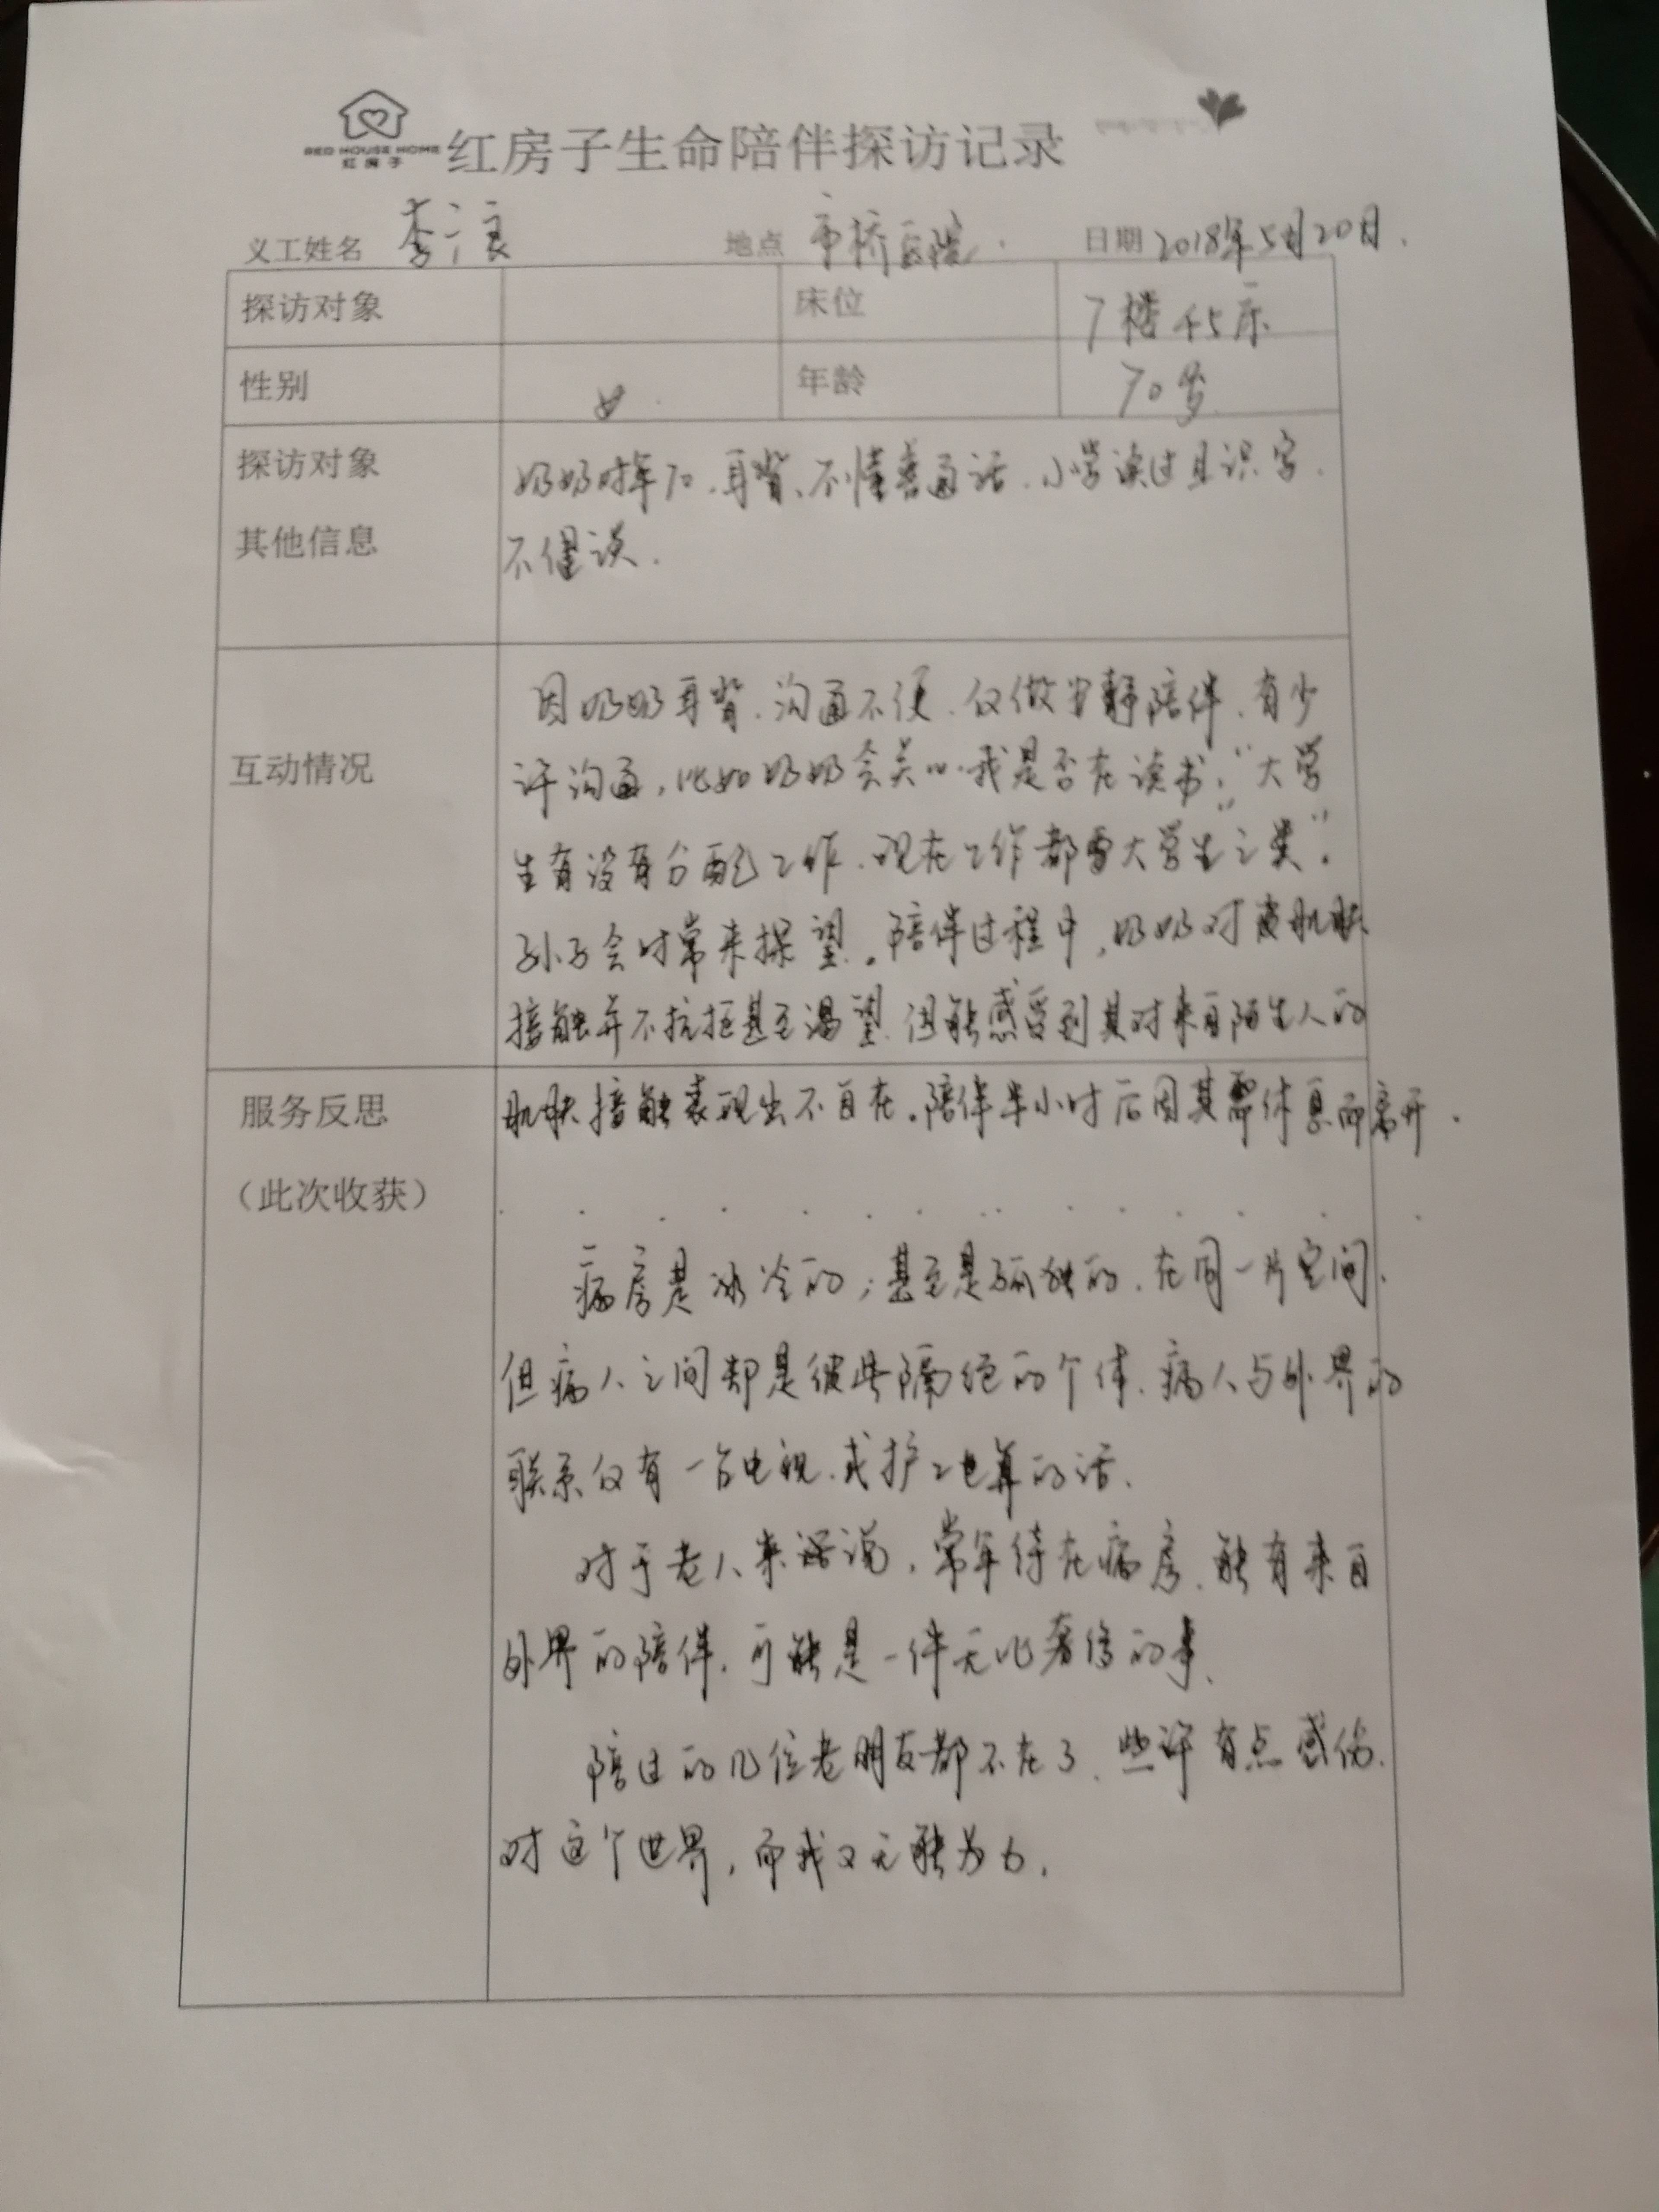 RED HOUSE HOME
红房子
红房子生命陪伴探访记录
义工姓名 李 良 地点 市桥医院. 日期 2018年5月20日.
探访对象 床位 7楼45床
性别 女. 年龄 70岁
探访对象 奶奶对年70.耳背、不懂普通话.小学读过且识字.
其他信息 不僅读.
因奶奶耳背.沟通不便.仅做安静陪伴.有少
互动情况 许沟通,比如奶奶会关心我是否在读书,“大学
生有没有分配工作.现在工作都要大学生之类”.
孙子会时常来探望.。陪伴过程中,奶奶对 肌肤
接触并不抗拒甚至渴望.但能感受到其对来自陌生人的
服务反思 肌肤接触表现出不自在。陪伴半小时后因其需休息而离开.
(此次收获)
病房是冰冷的;甚至是孤独的.在同一片空间.
但病人之间却是彼此隔绝的个体.病人与外界的
联系仅有一台电视.或护工也算的话.
对于老人来 说,常年待在病房.能有来自
外界的陪伴.可能是一件无比奢侈的事.
陪过的几位老朋友都不在了.些许有点感伤.
对这个世界,而我又无能为力.